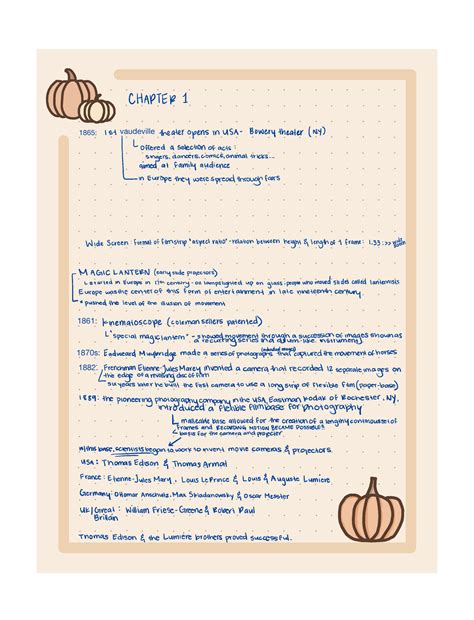 CHAPTER 1
1865: 1st vaudeville theater opens in USA- Bowery theater (NY)
offered a selection of acts:
singers, dancers, comics, animal tricks...
aimed at family audience
in Europe they were spread through fairs
Wide Screen: format of filmstrip "aspect ratio" - relation between height & length of 1 frame: 1.33 :>> wide screen
MAGIC LANTERN (early slide projectors)
started in Europe in 17th century - oil lamps lighted up on glass: people who moved slides called lanternists
Europe was the center of this form of entertainment in late nineteenth century.
* pushed the level of the illusion of movement
1861: Kinematoscope (Coleman Sellers patented)
"special magic lantern" - showed movement through a succession of images known as
a recurring series in a drum-like instrument
(individual images)
1870s: Eadweard Muybridge made a series of photographs that captured the movement of horses
1882: Frenchman Etienne-Jules Marey invented a camera that recorded 12 separate images on
the edge of a revolving disc of film
six years later he built the first camera to use a long strip of flexible film (paper-base)
1889: the pioneering photography company in the USA, Eastman Kodak of Rochester, NY,
introduced a flexible film base for photography
malleable base allowed for the creation of a lengthy continuous # of
frames and RECORDING MOTION BECAME POSSIBLE!!
basis for the camera and projector.
w/ this base, scientists began to work to invent movie cameras & projectors.
USA: Thomas Edison & Thomas Armat
France: Etienne-Jules Marey, Louis Le Prince & Louis & Auguste Lumiere
Germany: Ottomar Anschutz, Max Skladanowsky & Oscar Messter
UK/Great Britain: William Friese-Greene & Robert Paul
Thomas Edison & the Lumière brothers proved successful.